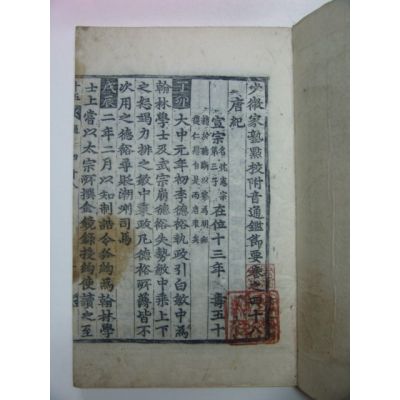 少微家塾點校附音通鑑節要卷之四十八
唐紀
宣宗 名忱憲宗第三子 在位十三年 壽五十
丁卯 大中元年初李德裕執政引白敏中爲
翰林學士及武宗崩德裕失勢敏中乘上下
之怒竭力排之敏中秉政凡德裕所薄皆不
次用之德裕尋貶潮州司馬
戊辰 二年二月以知制誥令狐綯爲翰林學
士上嘗以太宗所撰金鏡錄授綯使讀之至